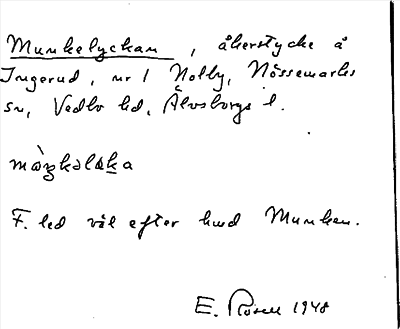 Munkelyckan, åkerstycke å
Ingerud, nr 1 Nolby, Nössemarks
sn, Vedbo hd, Älvsborgs l.
màŋkəlɯka
F. led väl efter hmd Munken.
E. Rosell 1948